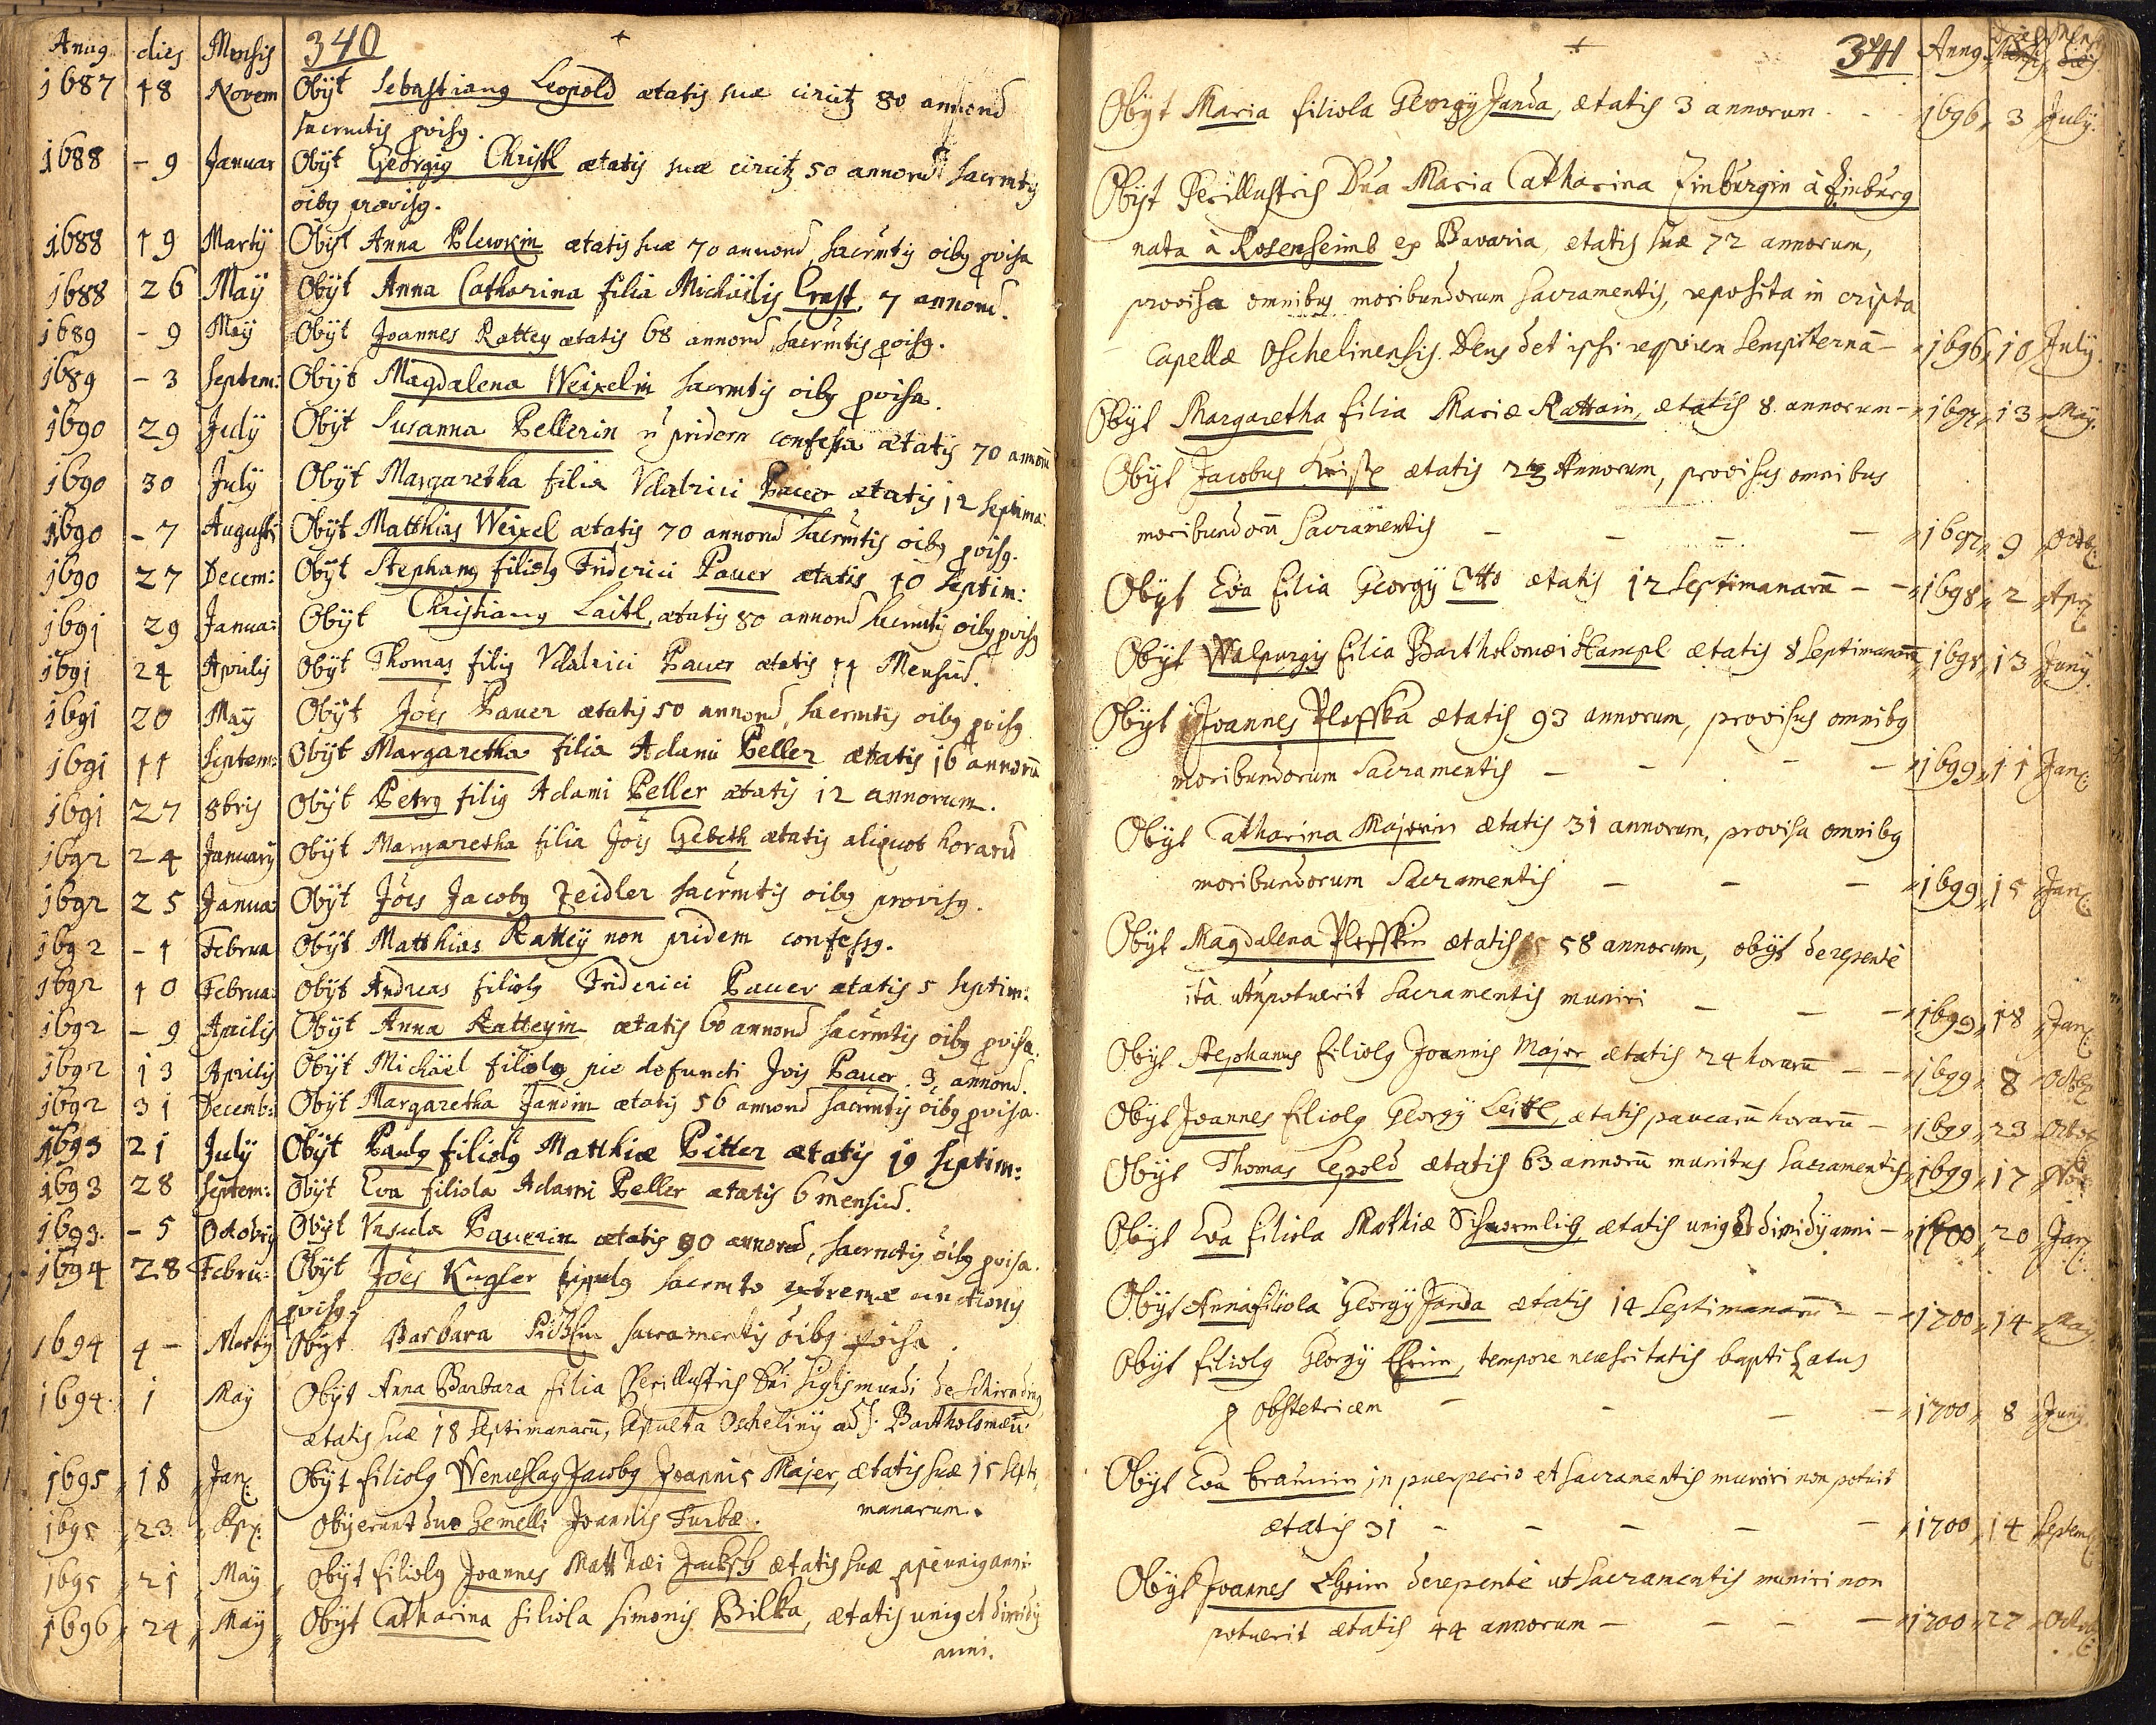 Annꝰ dies Mensis 340
1687 18 Novem Obijt Sebastianꝰ Leopold ætatis suæ circitr 80 annorũ
sacrmtis pvisꝰ.
1688 - 9 Januar Obijt Georgiꝰ Christl ætatis suæ circitr 50 annorũ sacrmtis
oibꝰ provisꝰ.
1688 19 Martij Obijt Anna Plewkin ætatis suæ 70 annorũ, sacrmtis oibꝰ pvisa
1688 26 Maÿ Obijt Anna Catharina filia Michaëlis Ernst, 7 annorũ.
1689 - 9 Maÿ Obijt Joannes Rattey ætatis 68 annorũ, sacrmtis pvisꝰ.
1689 - 3 Septem: Obijt Magdalena Weixelin sacrmtis oibꝰ pvisa.
1690 29 Julÿ Obijt Susanna Pellerin ñ pridem confessa ætatis 70 annorũ
1690 30 Julÿ Obijt Margaretha filia Vdalrici Pauer ætatis 12 septima:
1690 - 7 Augusti Obijt Matthias Weixel ætatis 70 annorũ sacrmtis oibꝰ pvisꝰ.
1690 27 Decem: Obijt Stephanꝰ filiolꝰ Friderici Pauer ætatis 10 septim:
1691 29 Janua: Obijt Christianꝰ Laitl, ætatis 80 annorũ sacrmtis oibꝰ pvisꝰ
1691 24 Aprilis Obijt Thomas filiꝰ Vdalrici Pauer ætatis 11 Mensiũ.
1691 20 Maÿ Obijt Jôes Pauer ætatis 50 annorũ, sacrmtis oibꝰ pvisꝰ
1691 11 Septem: Obijt Margaretha filia Adami Peller ætatis 16 annorũ
1691 27 8bris Obijt Petrꝰ filiꝰ Adami Peller ætatis 12 annorum.
1692 24 Januarÿ Obijt Margaretha filia Jois Gebeth ætatis aliquot horarũ
1692 25 Janua: Obijt Jôes Jacobꝰ Zeidler sacrmtis oibꝰ provisꝰ.
1692 - 1 Februa Obijt Matthias Rattey non pridem confessꝰ.
1692 10 Februa: Obijt Andreas filiolꝰ Friderici Pauer ætatis 5 septim:
1692 - 9 Aprilis Obijt Anna Ratteyin ætatis 60 annorũ sacrmtis oibꝰ pvisa.
1692 13 Aprilis Obijt Michäel filiolꝰ pie defuncti Jois Pauer. 3. annorũ.
1692 31 Decemb: Obijt Margaretha Jandin ætatis 56 annorũ sacrmtis oibꝰ pvisa.
1693 21 Julÿ Obijt Paulꝰ filiolꝰ Matthiæ Pitter ætatis 19 septim:
1693 28 Septem: Obijt Eva filiola Adami Peller ætatis 6 mensiũ.
1693. - 5 Octobris Obijt Vrsula Pauerin ætatis 90 annorũ, sacrmtis oibꝰ pvisa.
1694 28 Febru: Obijt Jôes Kugler sacrmto extremæ unctionis
pvisꝰ.
1694 4 - Martÿ Obijt Barbara sacramentis oibꝰ pvisa.
1694. 1 May Obijt Anna Barbara filia Perillustris Dñi Sigismundi de Schirnding
ætatis suæ 18 septimanarũ, sepulta Oschelinij ad S. Bartholomæũ
1695 18 Jan: Obijt filiolꝰ Wenceslaꝰ Jacobꝰ Joannis Majer, ætatis suæ 15 septi
manarum.
1695 23 Apr: Obijerunt duo Gemelli Joannis Furbæ.
1695 21 May Obijt filiolꝰ Joannes Matthæi Jacksch ætatis suæ pĩe uniꝰ anni
1696 24 May Obijt Catharina filiola Simonis Bilka, ætatis uniꝰ et dimidij
anni.
341 Annꝰ dies Mensis
Obijt Maria filiola Georgÿ Janda, ætatis 3 annorum. 1696 3 Julÿ.
Obijt Perillustris Dña Maria Catharina Zinburgin à Zinburg
nata à Rosenheimb ex Bavaria, ætatis suæ 72 annorum,
provisa omnibus moribundorum sacramentis, reposita in cripta
Capellæ Oschelinensis. Deus det ipsi requiem sempiternã - 1696 10 Julÿ.
Obijt Margaretha filia Mariæ Rattain, ætatis 8 annorum - 1697 13 May.
Obijt Jacobus Krista ætatis 23 Annorum, provisus omnibus
moribundorũ Sacramentis - - - - 1697 9 Octb:
Obijt Eva filia Georgÿ Otto ætatis 12 septimanarũ - - 1698 2 Apr
Obijt Walpurgis filia Bartholomæi Hampl ætatis 8 septimanarũ 1698 13 Junÿ.
Obijt Joannes Pleffka ætatis 93 annorum, provisus omnibꝰ
moribundorum Sacramentis - - - - 1699 11 Jan:
Obijt Catharina Majerin ætatis 31 annorum, provisa omnibꝰ
moribundorum Sacramentis - - - 1699 15 Jan:
Obijt Magdalena Pleffkin ætatis 58 annorum, obijt derepentè
ità ut ñ potuerit Sacramentis muniri - - - 1699 18 Jan:
Obijt Stephanus filiolꝰ Joannis Majer ætatis 24 horarũ - - 1699 8 Octb:
Obijt Joannes filiolꝰ Georgÿ Leitl, ætatis paucarũ horarũ - 1699 23 Octob
Obijt Thomas Lepold ætatis 63 annorũ munitus Sacramentis 1699 17 Nov:
Obijt Eva filiola Mathiæ Schwormlich ætatis uniꝰ et dimidij anni - 1700 20 Jan:
Obijt Anna filiola Georgÿ Janda ætatis 14 septimanarũ - - 1700 14 May
Obijt filiolꝰ Georgÿ Ehrim, tempore necessitatis baptizatus
p obstetricem - - - - 1700 8 Junÿ.
Obijt Eva braunin in puerperio et Sacramentis muniri non potuit
ætatis 31 - - - - - 1700 14 Septemb:
Obijt Joannes Ehrim derepentè ut Sacramentis muniri non
potuerit ætatis 44 annorum - - - - 1700 27 Octob: